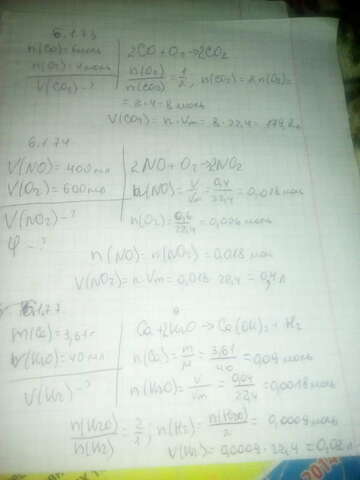 6.1.73
n(CO)=6моль
n(O₂)=4моль
V(CO₂)-?
2CO+O₂→2CO₂
n(O₂)/n(CO₂)=1/2, n(CO₂)=2n(O₂)=
=2·4=8 моль
V(CO₂)=n·Vm=8·22,4=179,2л
6.1.74
V(NO)=400мл
V(O₂)=600мл
V(NO₂)-?
φ-?
2NO+O₂→2NO₂
n(NO)=V/Vm=0,4/22,4=0,018моль
n(O₂)=0,6/22,4=0,026 моль
n(NO)=n(NO₂)=0,018 моль
V(NO₂)=n·Vm=0,018·22,4=0,4 л
6.1.77
m(Ca)=3,61г
V(H₂O)=40 мл
V(H₂)-?
Ca+2H₂O→Ca(OH)₂+H₂
n(Ca)=m/M=3,61/40=0,09 моль
n(H₂O)=V/Vm=0,04/22,4=0,0018моль
n(H₂O)/n(H₂)=2/1; n(H₂)=n(H₂O)/2=0,0009 моль
V(H₂)=0,0009·22,4=0,02 л
2014